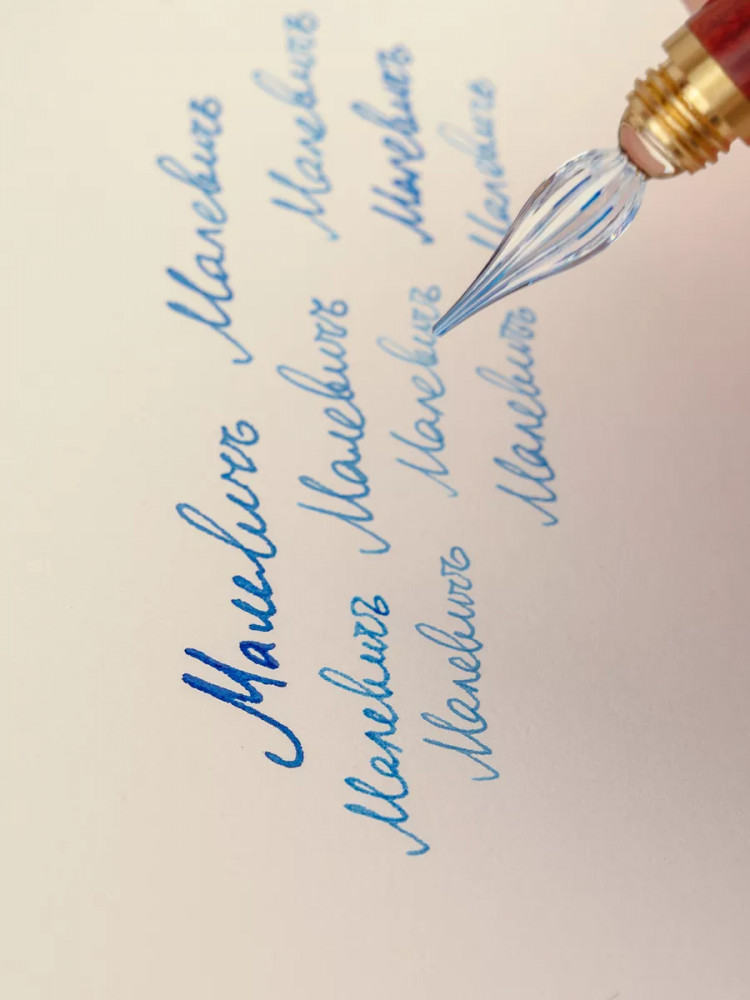 Малевичъ Малевичъ
Малевичъ Малевичъ Малевичъ
Малевичъ Малевичъ Малевичъ
Малевичъ Малевичъ